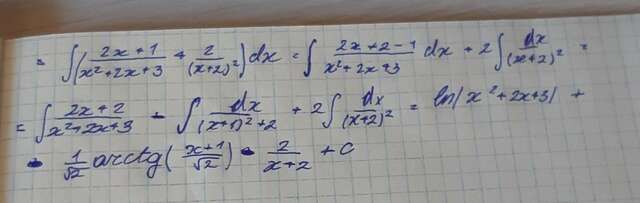 = ∫(2x+1/x²+2x+3 + 2/(x+2)²)dx = ∫ 2x+2-1/x²+2x+3 dx + 2∫ dx/(x+2)² =
= ∫ 2x+2/x²+2x+3 - ∫ dx/(x+1)²+2 + 2∫ dx/(x+2)² = ln|x²+2x+3| +
- 1/√2 arctg(x+1/√2) - 2/x+2 + C